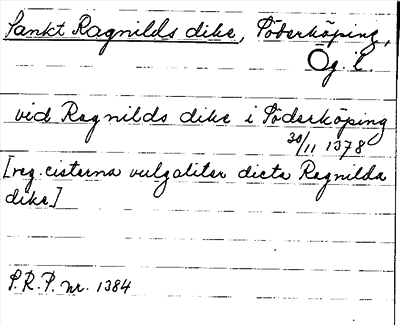 Sankt Ragnilds dike, Söderköping,
Ög. l.
vid Ragnilds dike i Söderköping
30/11 1378
[reg. cisterna vulgaliter dicta Ragnilda
dike]
S.R.P. nr. 1384